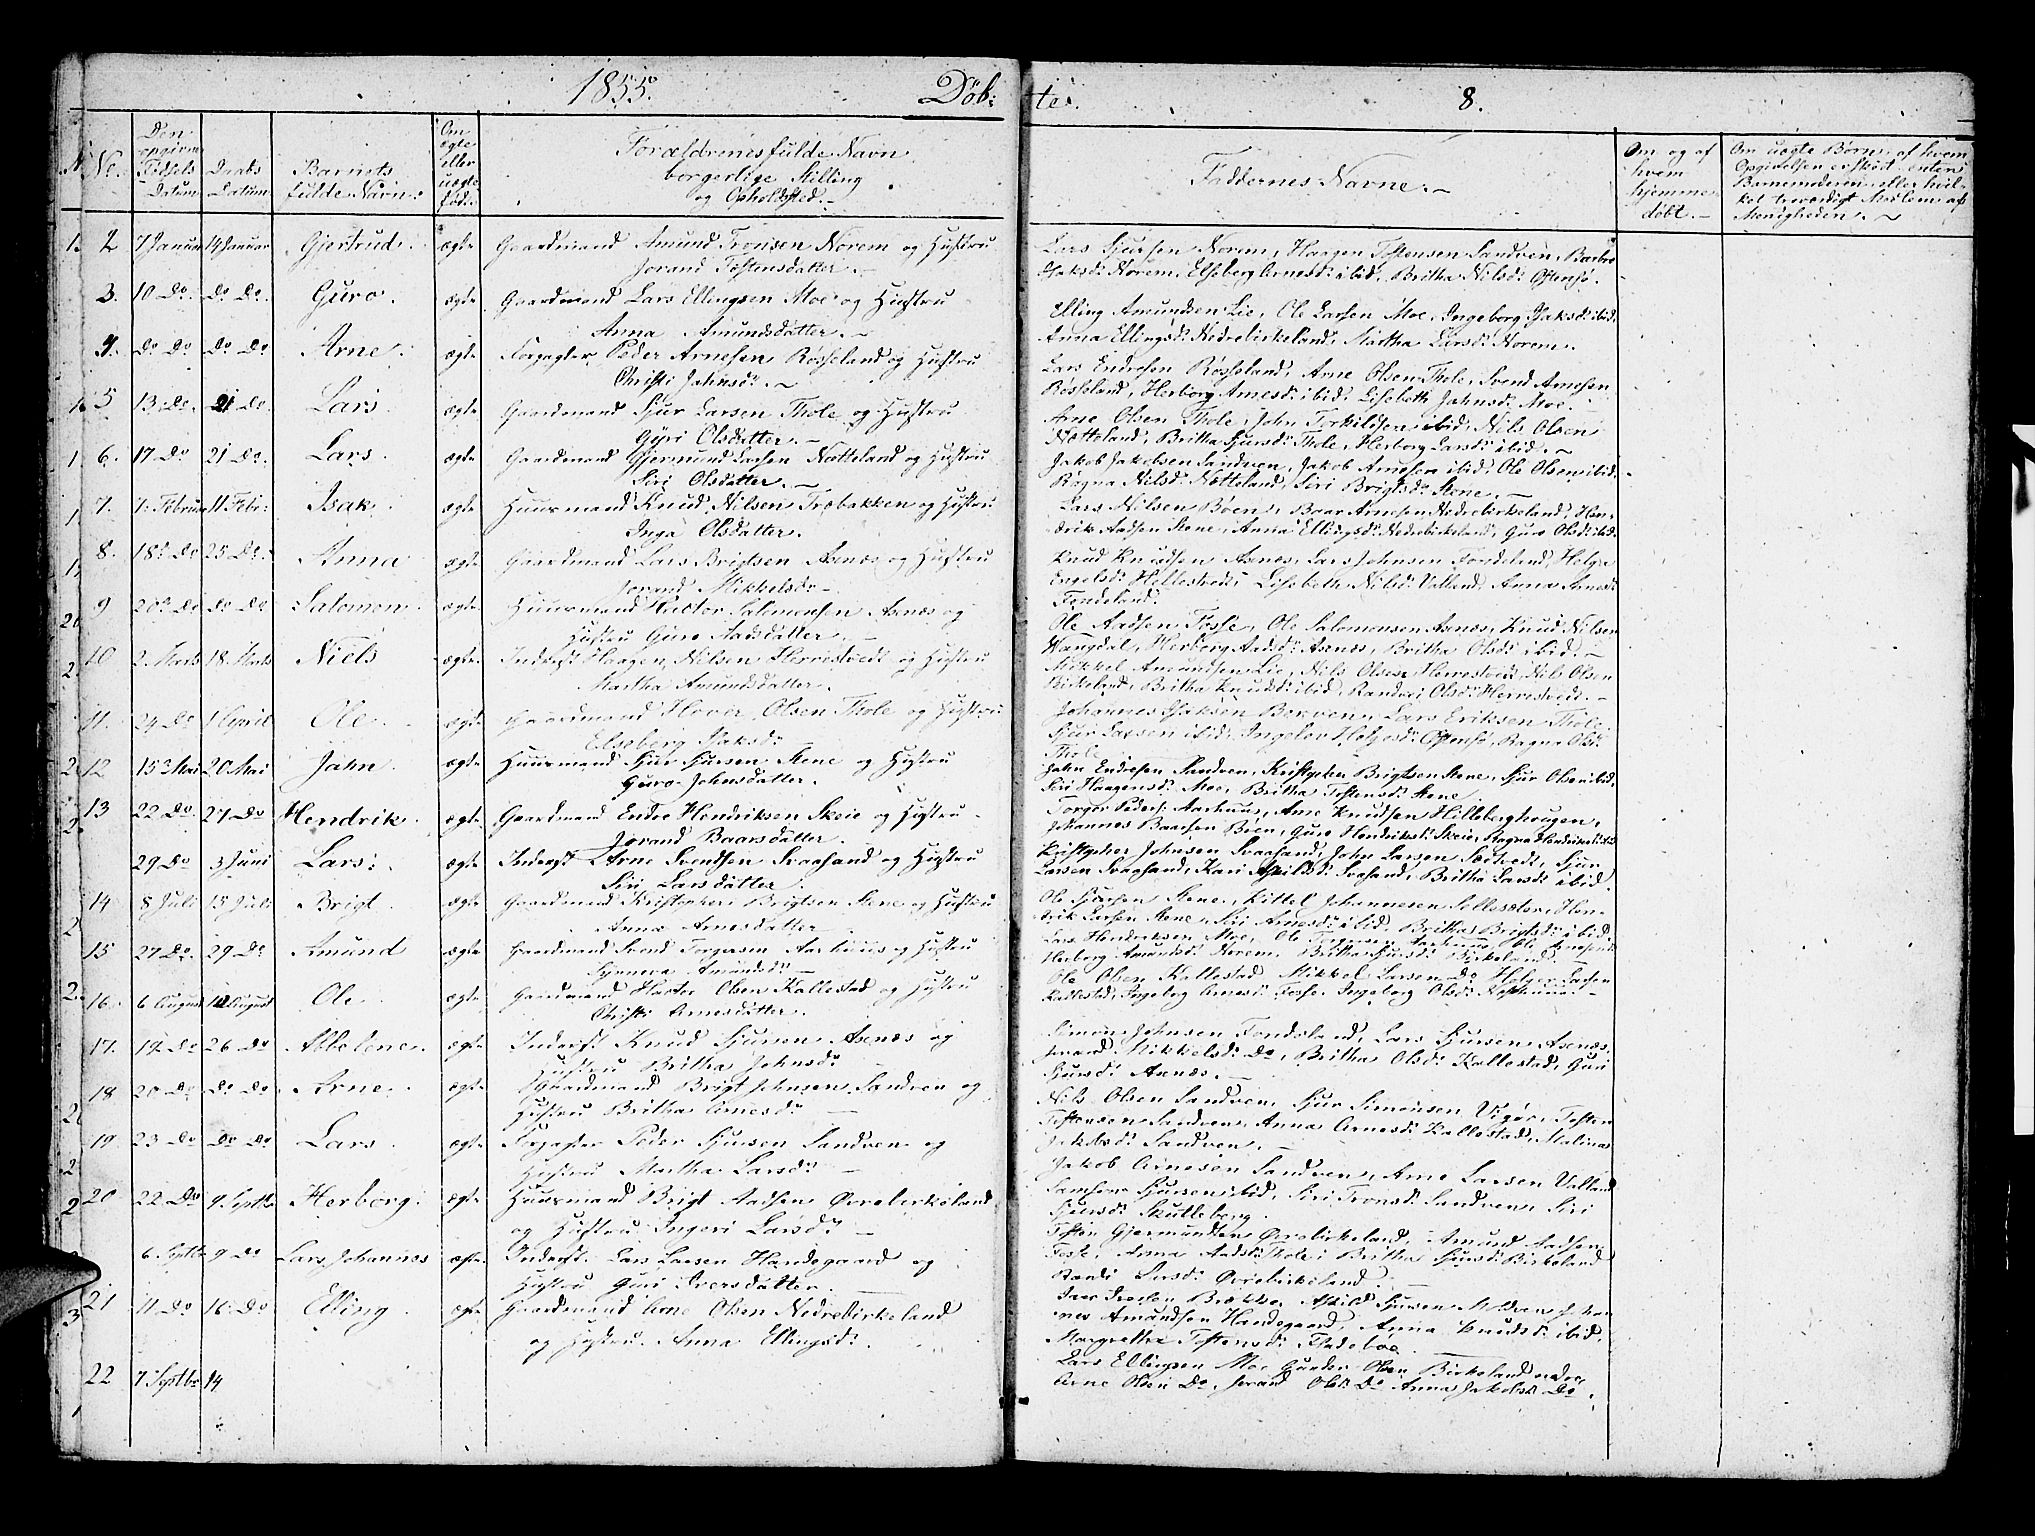 1855. Døb-
te. 8.
No. Den opgivne Fødsels Datum Daabs Datum Barnets fulde Navn: Om ægte eller uægte født. Forældrenes fulde Navn borgerlige Stilling og Opholdssted.
Faddernes Navne. Om og af hvem hjemmedøbt. Om uægte Børn, af hvem Opgivelsen er skeet, enten Barnemoderen eller hvilket troværdigt Medlem af Menigheden.
2 7 Januar 14 Januar Gjertrud. ægte Gaardmand Amund Tronsen Norem og Hustru
Jorand Tostensdatter.
Lars Sjursen Norem, Haagen Tostensen Sandven, Barbro
Isaksd: Norem, Elseberg Arnesd: ibid, Britha Nilsd: Ostensø.
3. 10 Do. Do Do. Guro. ægte Gaardmand Lars Ellingsen Moe og Hustru
Anna Amundsdatter.
Elling Amundsen Lie, Ole Larsen Moe, Ingeborg Isaksd: ibid,
Anna Ellingsd: Nedrebirkeland, Martha Larsd: Norem.
4. Do Do Do Do Arne. ægte Forpagter Peder Arnesen Rosseland og Hustru
Christi Jahnsd:
Lars Endresen Røsseland, Arne Olsen Thole, Svend Arnesen
Røsseland, Herborg Arnesd: ibid, Lisebeth Jahnsd: Moe.
5 13. Do. 21 Do. Lars. ægte Gaardmand Sjur Larsen Thole og Hustru
Gyri Olsdatter.
Arne Olsen Thole, John Torkildsen ibid, Nils Olsen
Nætteland, Britha Sjursd: Thole, Herborg Larsd: ibid.
6. 17 Do 21 Do. Lars. ægte Gaardmand Gjermund Larsen Nætteland og Hustru
Siri Olsdatter.
Jakob Jakobsen Sandven, Jakob Arnesen ibid, Ole Olsen ibid.
Ragna Nilsd: Nætteland, Siri Brigtsd: Stene.
7. 7. Februar 11 Febr: Isak. ægte Huusmand Knud Nilsen Træbakken og Hustru
Inga Olsdatter.
Lars Nilsen Bøen, Baar Arnesen Nedrebirkeland, Hen-
drik Aadsen Stene, Anna Ellingsd: Nedrebirkeland, Guro Olsd: ibid.
8. 18. Do 25 Do. Anna ægte Gaardmand Lars Brigtsen Asnæs og Hustru
Jorand Mikkelsd:
Knud Knudsen Asnæs, Lars Johnsen Fondeland, Helga
Engelsd: Hellestvedt, Lisebeth Nilsd: Valland, Anna Arnesd:
Fondeland.
9 20. Do Do Do Salomon. ægte Huusmand Hector Salomonsen Asnæs og
Hustru Guro Aadsdatter.
Ole Aadsen Tosse, Ole Salomonsen Asnæs, Knud Nilsen
Vangdal, Herborg Aadsd: Asnæs, Britha Olsd: ibid.
10 2. Marts 18. Marts Niels ægte. Inderst Haagen Nilsen Herrestvedt og Hustru
Martha Amundsdatter.
Mikkel Amundsen Lie, Nils Olsen Herrestvedt, Nils Olsen
Birkeland, Britha Knudsd: ibid, Randvei Olsd: Herrestvedt.
11. 24 Do 1 April Ole. ægte Gaardmand Hover Olsen Thole og Hustru
Elseberg Isaksd:
Johannes Isaksen Bakven, Lars Eriksen Thole
Sjur Larsen ibid, Ingelev Helgesd: Ostensø, Ragna Olsd:
Thole.
12 15. Mai 20 Mai Jahn. ægte Huusmand Sjur Sjursen Stene og Hustru
Guro Johnsdatter.
Jahn Endresen Sandven, Kristopher Brigtsen Stene, Sjur Olsen ibid,
Siri Haagensd: Moe, Britha Tostensd: Stene.
13 22 Do. 27 Do Hendrik. ægte. Gaardmand Endre Hendriksen Skeie og Hustru
Jorand Baarsdatter.
Torger Peders: Aarhuus, Arne Knudsen Hilleberghougen,
Johannes Baarsen Bøen, Guro Hendriksd: Skeie, Ragna Hendriksd: ibid
29 Do 3 Juni Lars: ægte Inderst Arne Svendsen Svaasand og Hustru
Siri Larsdatter.
Kristopher Johnsen Svaasand, John Larsen Sætvedt, Sjur
Larsen Svaasand, Kari Askildsd: Svasand, Britha Larsd: ibid.
14 8 Juli 15 Juli Brigt. ægte Gaardmand Kristopher Brigtsen Stene og Hustru
Anna Arnesdatter
Ole Sjursen Stene, Kittel Johannesen Sollesæter, Hen-
drik Larsen Stene, Siri Arnesd: ibid, Britha Brigtsd: ibid.
15 27 Do. 29 Do Amund ægte Gaardmand Svend Torgersen Aarhuus og Hustru
Synneva Amundsd:
Lars Hendriksen Moe, Ole Torgersen Aarhuus, Ole Arnesen
Herborg Amundsd: Norem, Britha Sjursd: Birkeland.
16. 6 August 12 August Ole ægte Gaardmand Hector Olsen Kallestad og Hustru
Christi Arnesdatter.
Ole Olsen Kallestad, Mikkel Larsen Do, Helge Larsen
Kallestad, Ingeborg Arnesd: Tosse, Ingeborg Olsd:
17. 14. Do 26 Do Abbelene. ægte Inderst Knud Sjursen Asnæs og
Hustru Britha Johnsd:
Simon Johnsen Fondeland, Lars Sjursen Asnæs,
Jorand Mikkelsd: Do, Britha Olsd: Kallestad, Guri
Sjursd: Asnæs.
18 20 Do Do Do Arne. ægte Gaardmand Brigt Johnsen Sandven og
Hustru Britha Arnesd:
Nils Olsen Sandven, Sjur Simonsen Vigør, Tosten
Tostensen Sandven, Anna Arnesd: Kallestad, Malina
Jakobsd: Sandven.
19. 23 Do Do Do Lars. ægte Forpagter Peder Sjursen Sandven og
Hustru Martha Larsd:
Jakob Arnesen Sandven, Arne Larsen Valland
Samson Sjursen ibid, Siri Tronsd: Sandven, Siri
Sjursd: Skutleberg.
20 22 Do 9. Septbr Herborg. ægte Huusmand Brigt Aadsen Øvrebirkeland
og Hustru Ingeri Larsd:
Tosten Gjermundsen Øvrebirkeland, Amund Aadsen
Tosse, Anna Aadsd: Thole, Britha Sjursd: Birkeland
Randi Larsd: Øvrebirkeland.
6 Septbr 9 Do Lars Johannes ægte. Inderst Lars Larsen Handegaard og
Hustru Guri Iversdatter.
Iver Iversen Brække, Askild Sjursen Molven, Johan-
nes Amundsen Handegaard, Anna Knudsd: ibid,
Margretha Tostensd: Fladebøe.
21 11 Do 16 Do Elling. ægte Gaardmand Arne Olsen Nedrebirkeland
og Hustru Anna Ellingsd:
Lars Ellingsen Moe, Gunder Olsen Birkeland nedre
Arne Olsen Do, Jorand Olsd: Do, Anna Jakobsd: Do
22 7 Septbr 14